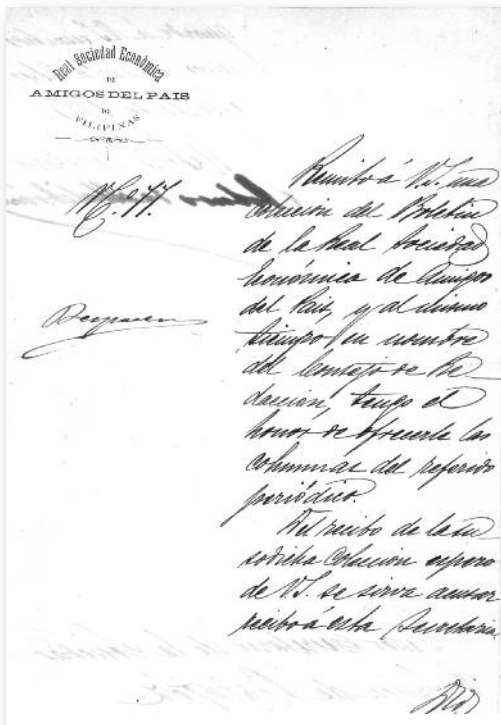 Real Sociedad Económica
DE
AMIGOS DEL PAIS
DE
FILIPINAS
Remito á V.S. una
coleccion del Boletin
de la Real Sociedad
Económica de Amigos
del Pais, y al mismo
tiempo en nombre
del Consejo de Re-
daccion, tengo el
honor de ofrecerle las
columnas del referido
periódico.
Del recibo de la su
sodicha coleccion espero
de V.S. se sirva acusar
recibo á esta Secretaria
Dios